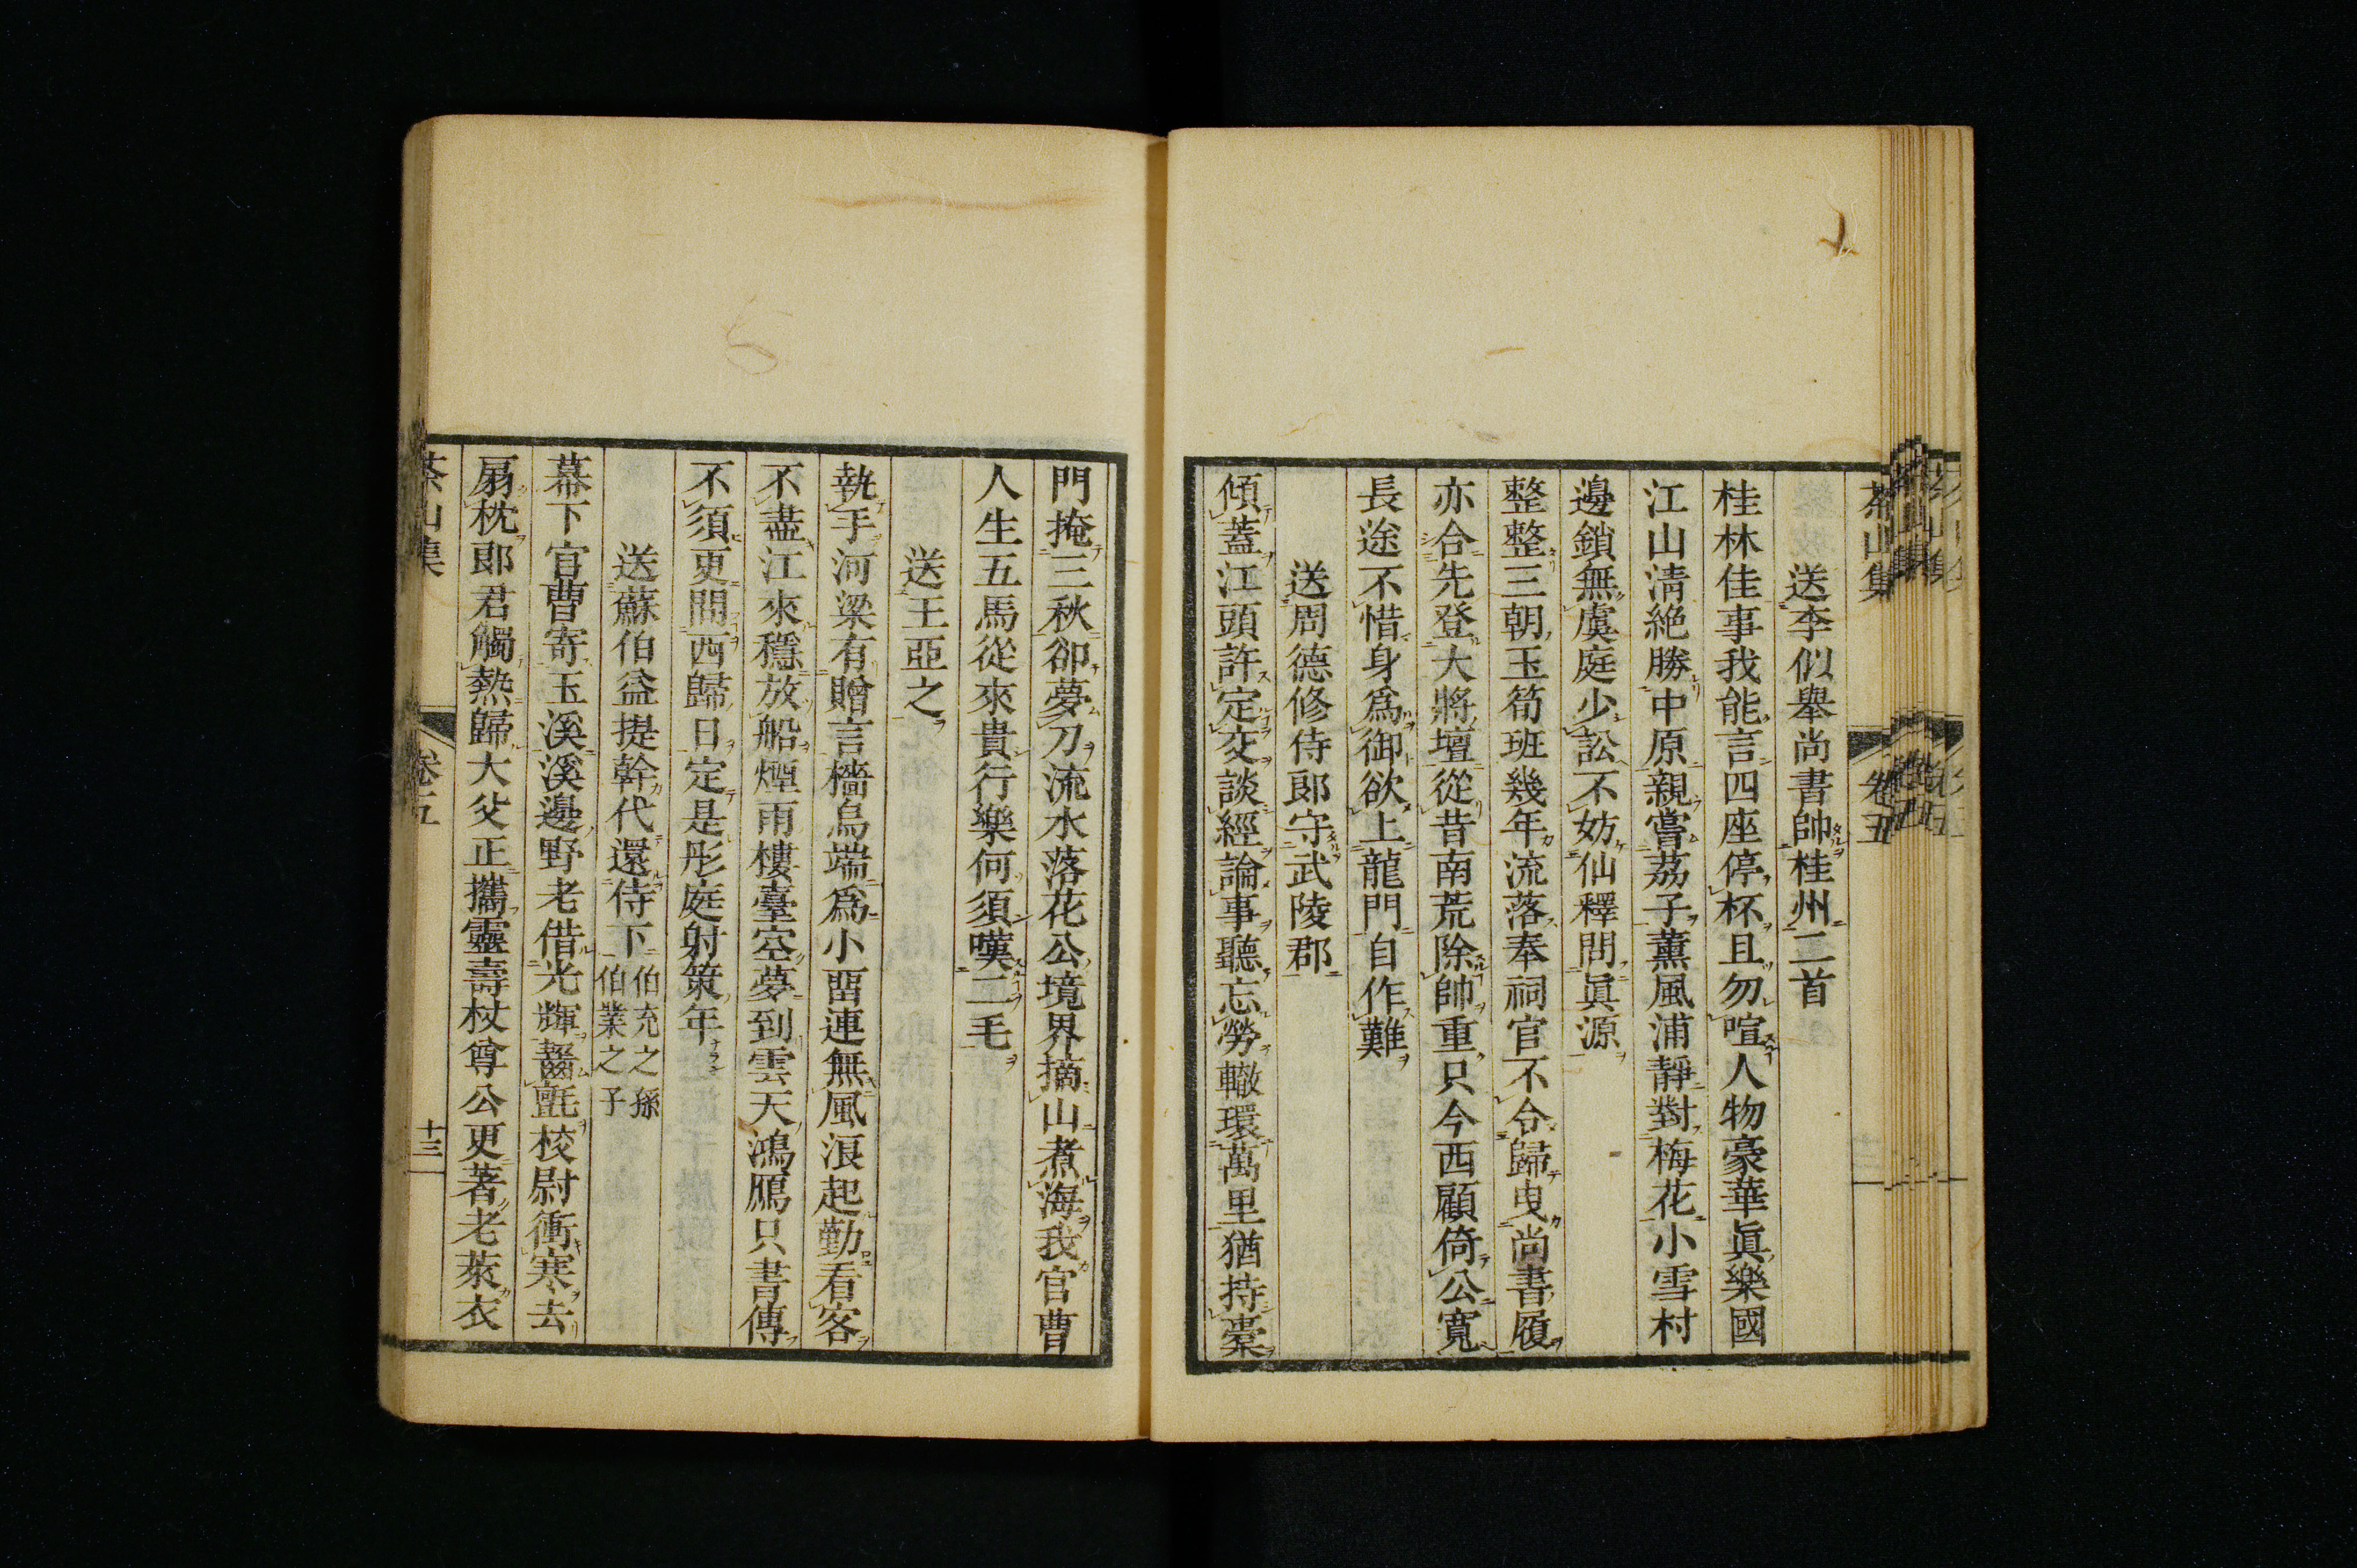 茶山集 卷五
送李似舉尚書帥桂州二首
桂林佳事我能言四座停杯且勿喧人物豪華眞樂國
江山淸絶勝中原親嘗荔子薰風浦靜對梅花小雪村
邊鎖無虞庭少訟不妨仙釋問眞源
整整三朝玉筍班幾年流落奉祠官不令歸曳尚書履
亦合先登大將壇從昔南荒除帥重只今西顧倚公寬
長途不惜身爲御欲上龍門自作難
送周德修侍郞守武陵郡
傾蓋江頭許定交談經論事聽忘勞轍環萬里猶持橐
門掩三秋卻夢刀流水落花公境界摘山煮海我官曹
人生五馬從來貴行樂何須嘆二毛
送王亞之
執手河梁有贈言檣烏端爲小留連無風浪起勤看客
不盡江來穩放船煙雨樓臺空夢到雲天鴻鴈只書傳
不須更問西歸日定是彤庭射策年
送蘇伯益提幹代還侍下
伯充之孫
伯業之子
幕下官曹寄玉溪溪邊野老借光輝齧氈校尉衝寒去
扇枕郞君觸熱歸大父正攜靈壽杖尊公更著老萊衣
茶山集 卷五 十三